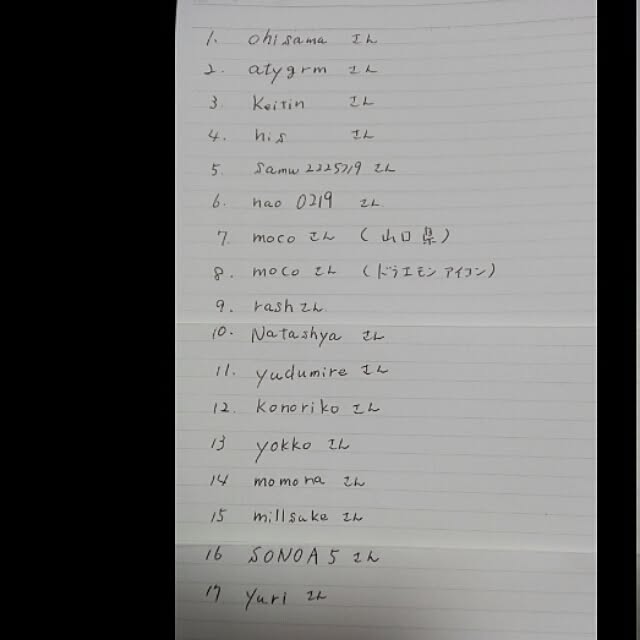 1. ohisama さん
2. atygrm さん
3 Keitin さん
4. his さん
5. samw2225719 さん
6. nao 0219 さん
7. moco さん (山口県)
8. moco さん (ドラエモンアイコン)
9. rash さん
10. Natashya さん
11. yudumire さん
12. Konoriko さん
13 yokko さん
14 momona さん
15 millsake さん
16 SONOA5 さん
17 yuri さん